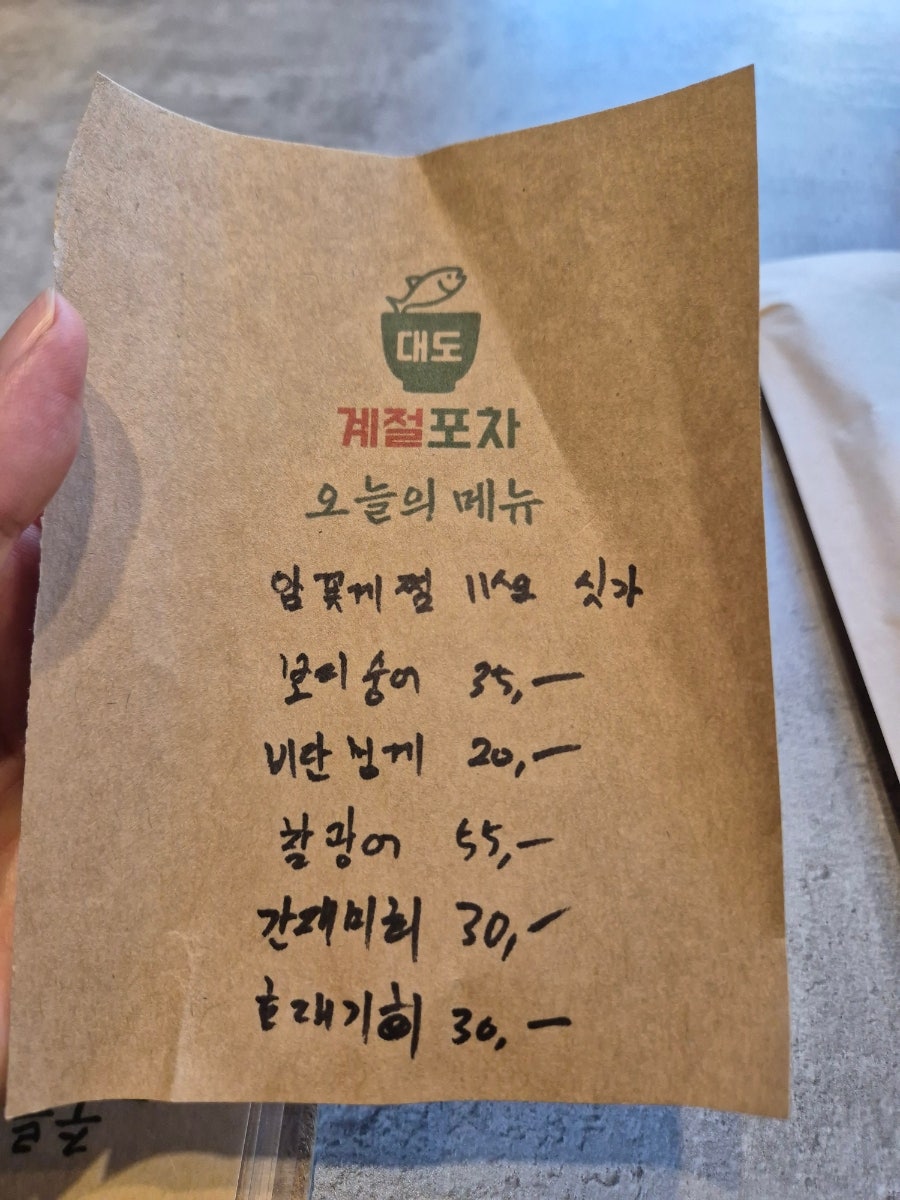 대도
계절포차
오늘의 메뉴
암꽃게찜 싯가
보리숭어 35,—
비단멍게 20,—
찰광어 55,—
간재미회 30,—
호래기회 30,—